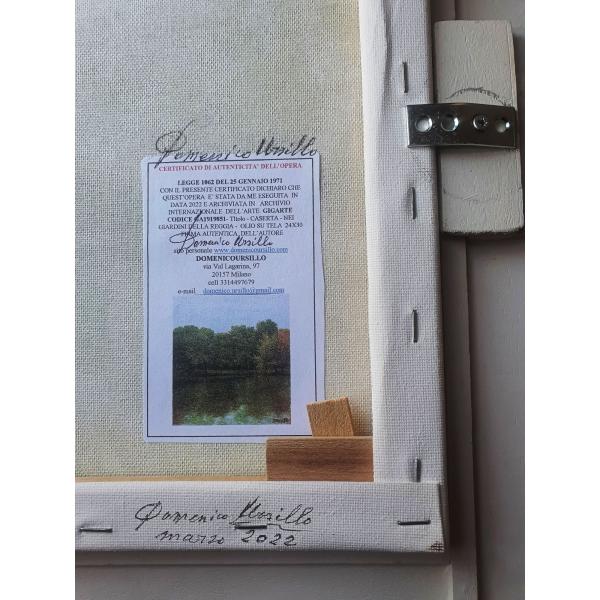 Domenico Ursillo
CERTIFICATO DI AUTENTICITA' DELL'OPERA
LEGGE 1062 DEL 25 GENNAIO 1971
CON IL PRESENTE CERTIFICATO DICHIARO CHE
QUEST'OPERA E' STATA DA ME ESEGUITA IN
DATA 2022 E ARCHIVIATA IN ARCHIVIO
INTERNAZIONALE DELL'ARTE GIGARTE
CODICE GA1919851- Titolo - CASERTA - NEI
GIARDINI DELLA REGGIA - OLIO SU TELA 24X30
FIRMA AUTENTICA DELL'AUTORE
Domenico Ursillo
sito personale www.domenicoursillo.com
DOMENICOURSILLO
via Val Lagarina, 97
20157 Milano
cell 3314497679
e-mail domenico.ursillo@gmail.com
Domenico Ursillo
marzo 2022